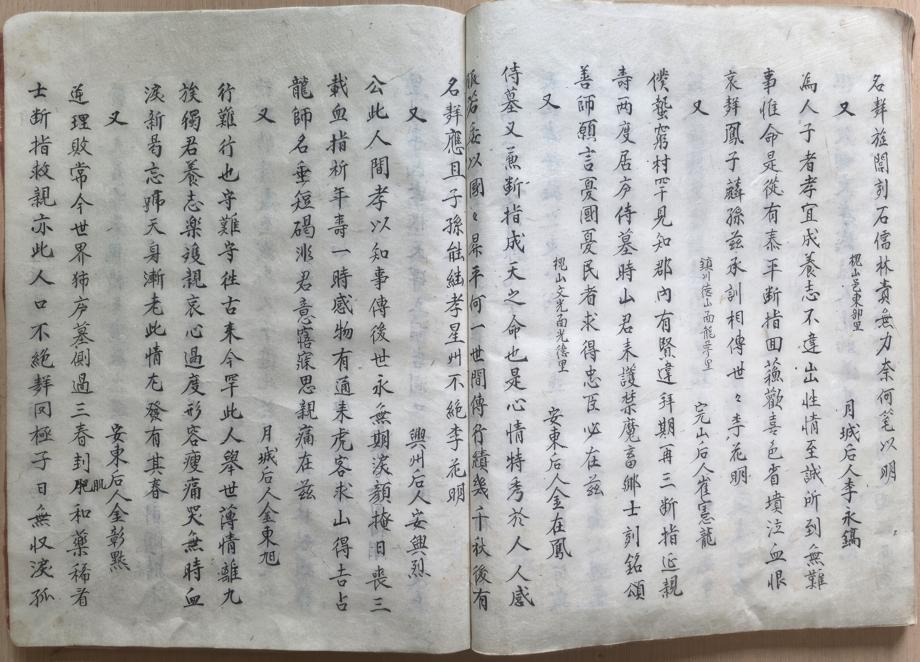 名群旌閭刻石儒林責無力奈何笔以明
又 槐山邑東部里 月城后人李永鎬
為人子者孝宜成養志不違出性情至誠所到無難
事惟命是從有泰平断指回蘓歡喜色省墳泣血恨
哀群鳳子麟孫茲承訓相傳世々李花明
又 鎮川德山面龍夢里 完山后人崔憲龍
僕蟄窮村罕見知郡內有賢違拜期再三断指延親
壽兩度居庐侍墓時山君来護禁魔畜鄉士刻銘頌
善師願言憂國憂民者求得忠臣必在茲
又 槐山文光面光德里 安東后人金在鳳
侍墓又蕉断指成天之命也是心情特秀於人人感
服若委以國々昇平何一世間傳行績幾千秋後有
名群應且子孫能継孝星州不絶李花明
又 興州后人安興烈
公此人間孝以知事傳後世永無期淚顏掩日喪三
載血指祈年壽一時感物有適来虎客求山得吉占
龍師名垂短碣泝君意寤寐思親痛在茲
又 月城后人金東旭
行難行也守難守徃古来今罕此人舉世薄情離九
族獨君養志楽雙親哀心過度形容瘦痛哭無時血
淚新曷忘號天身漸老此情尤發有其春
又 安東后人金彰㸃
道理敗常今世界狮庐墓側過三春刲肌和藥稀者
士断指救親亦此人口不絶群罔極子日無収淚孤